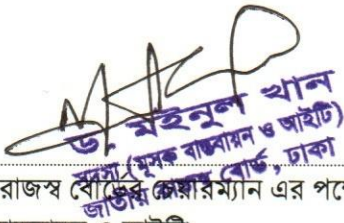 ড. মইনুল খান
সদস্য (মূসক বাস্তবায়ন ও আইটি)
জাতীয় রাজস্ব বোর্ড, ঢাকা
রাজস্ব বোর্ডের চেয়ারম্যান এর পক্ষে